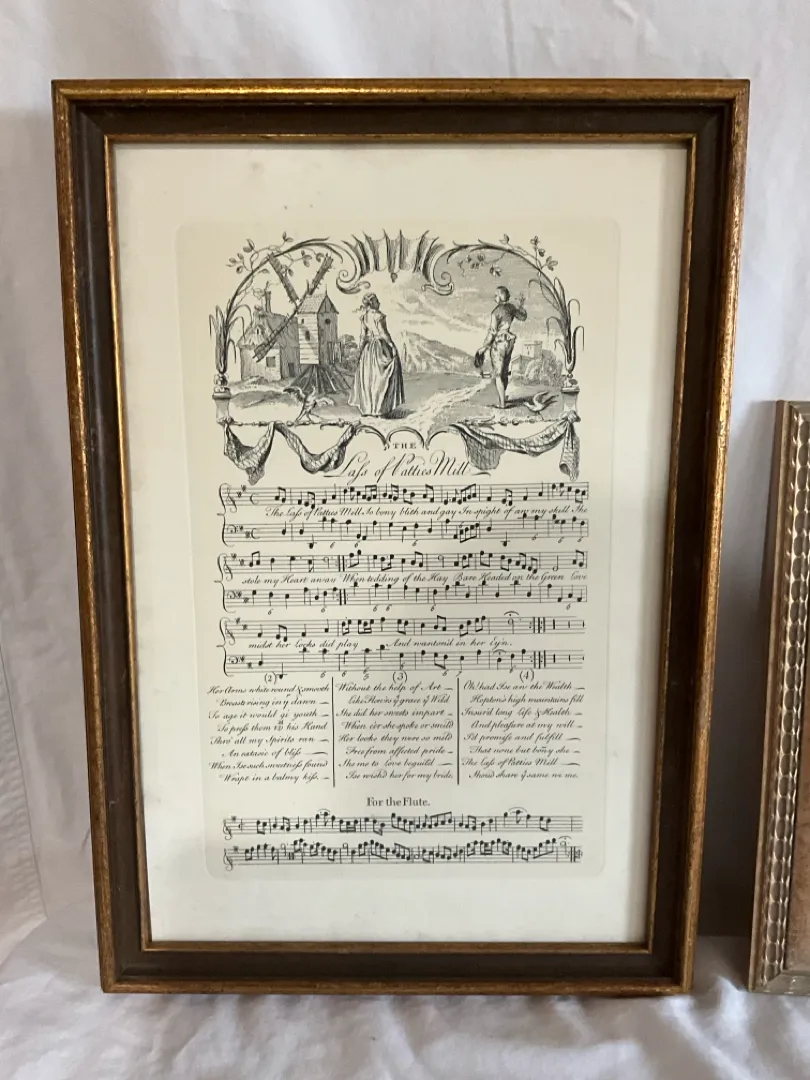 THE
Laſs of Patties Mill
The Laſs of Patties Mill So bony blith and gay In spight of aw my skill She
stole my Heart away When tedding of the Hay Bare Headed on the Green Love
midst her Locks did play And wanton'd in her Eyn.
(2)
Her Arms white round & smooth
Breasts rising in ẏ dawn
To age it would gi youth
To preſs them wi his Hand
Thro' all my Spirits ran
An extasie of bliſs
When I se such sweetneſs found
Wrapt in a balmy kiſs.
(3)
Without the help of Art
Like Flow'rs ẏ grace ẏ Wild
She did her sweets impart
When e'er she spoke or smil'd
Her looks they were so mild
Free from affected pride
She me to Love beguil'd
I se wish'd her for my bride.
(4)
Oh! had I se aw the Wealth
Hopton's high mountains fill
Insur'd long Life & Health
And pleasure at my will
I'd promise and fulfill
That none but bony she
The Laſs of Patties Mill
Shou'd share ẏ same wi me.
For the Flute.